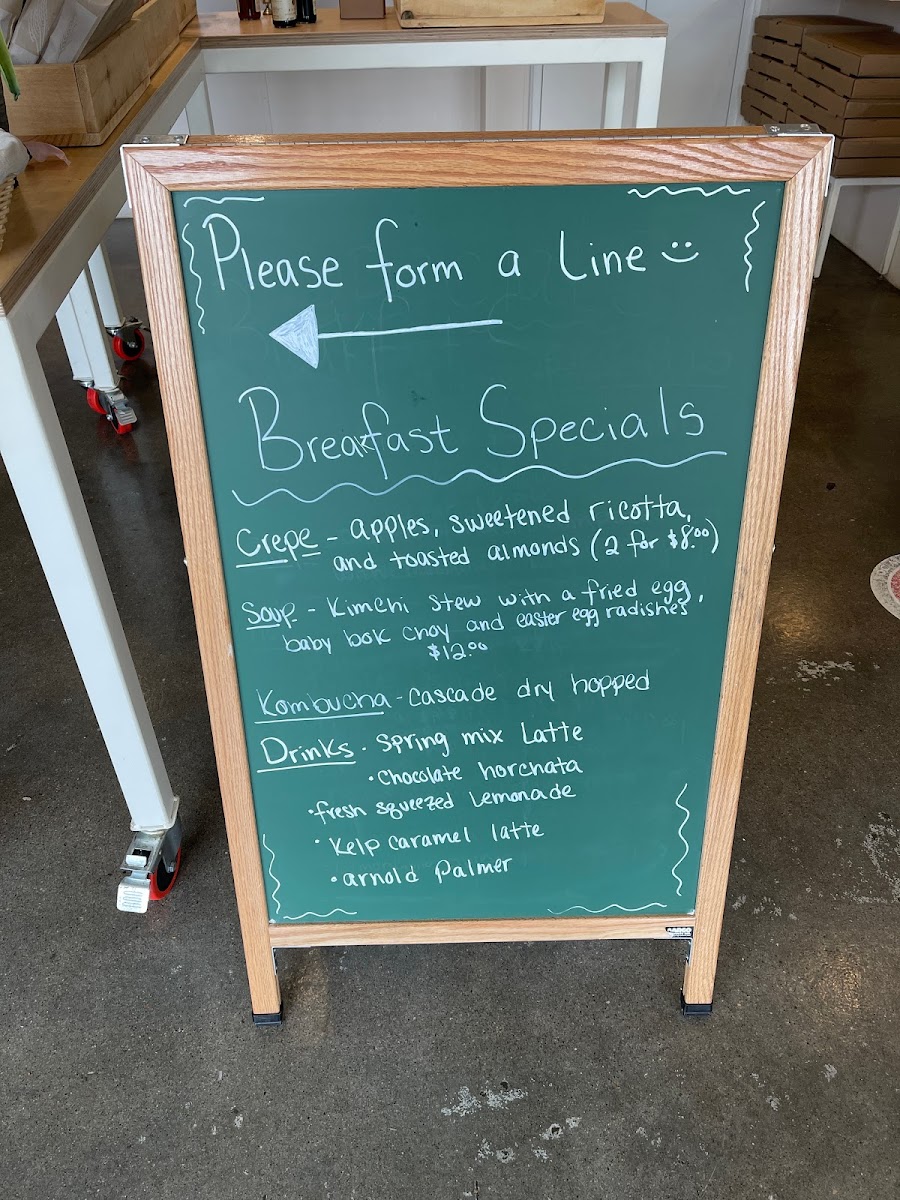 Please form a Line
Breakfast Specials
Crepe - apples, sweetened ricotta,
and toasted almonds (2 for $8.00)
Soup - Kimchi Stew with a fried egg,
baby bok choy and easter egg radishes
$12.00
Kombucha - Cascade dry hopped
Drinks · Spring mix Latte
· Chocolate horchata
· fresh squeezed Lemonade
· Kelp caramel latte
· arnold Palmer